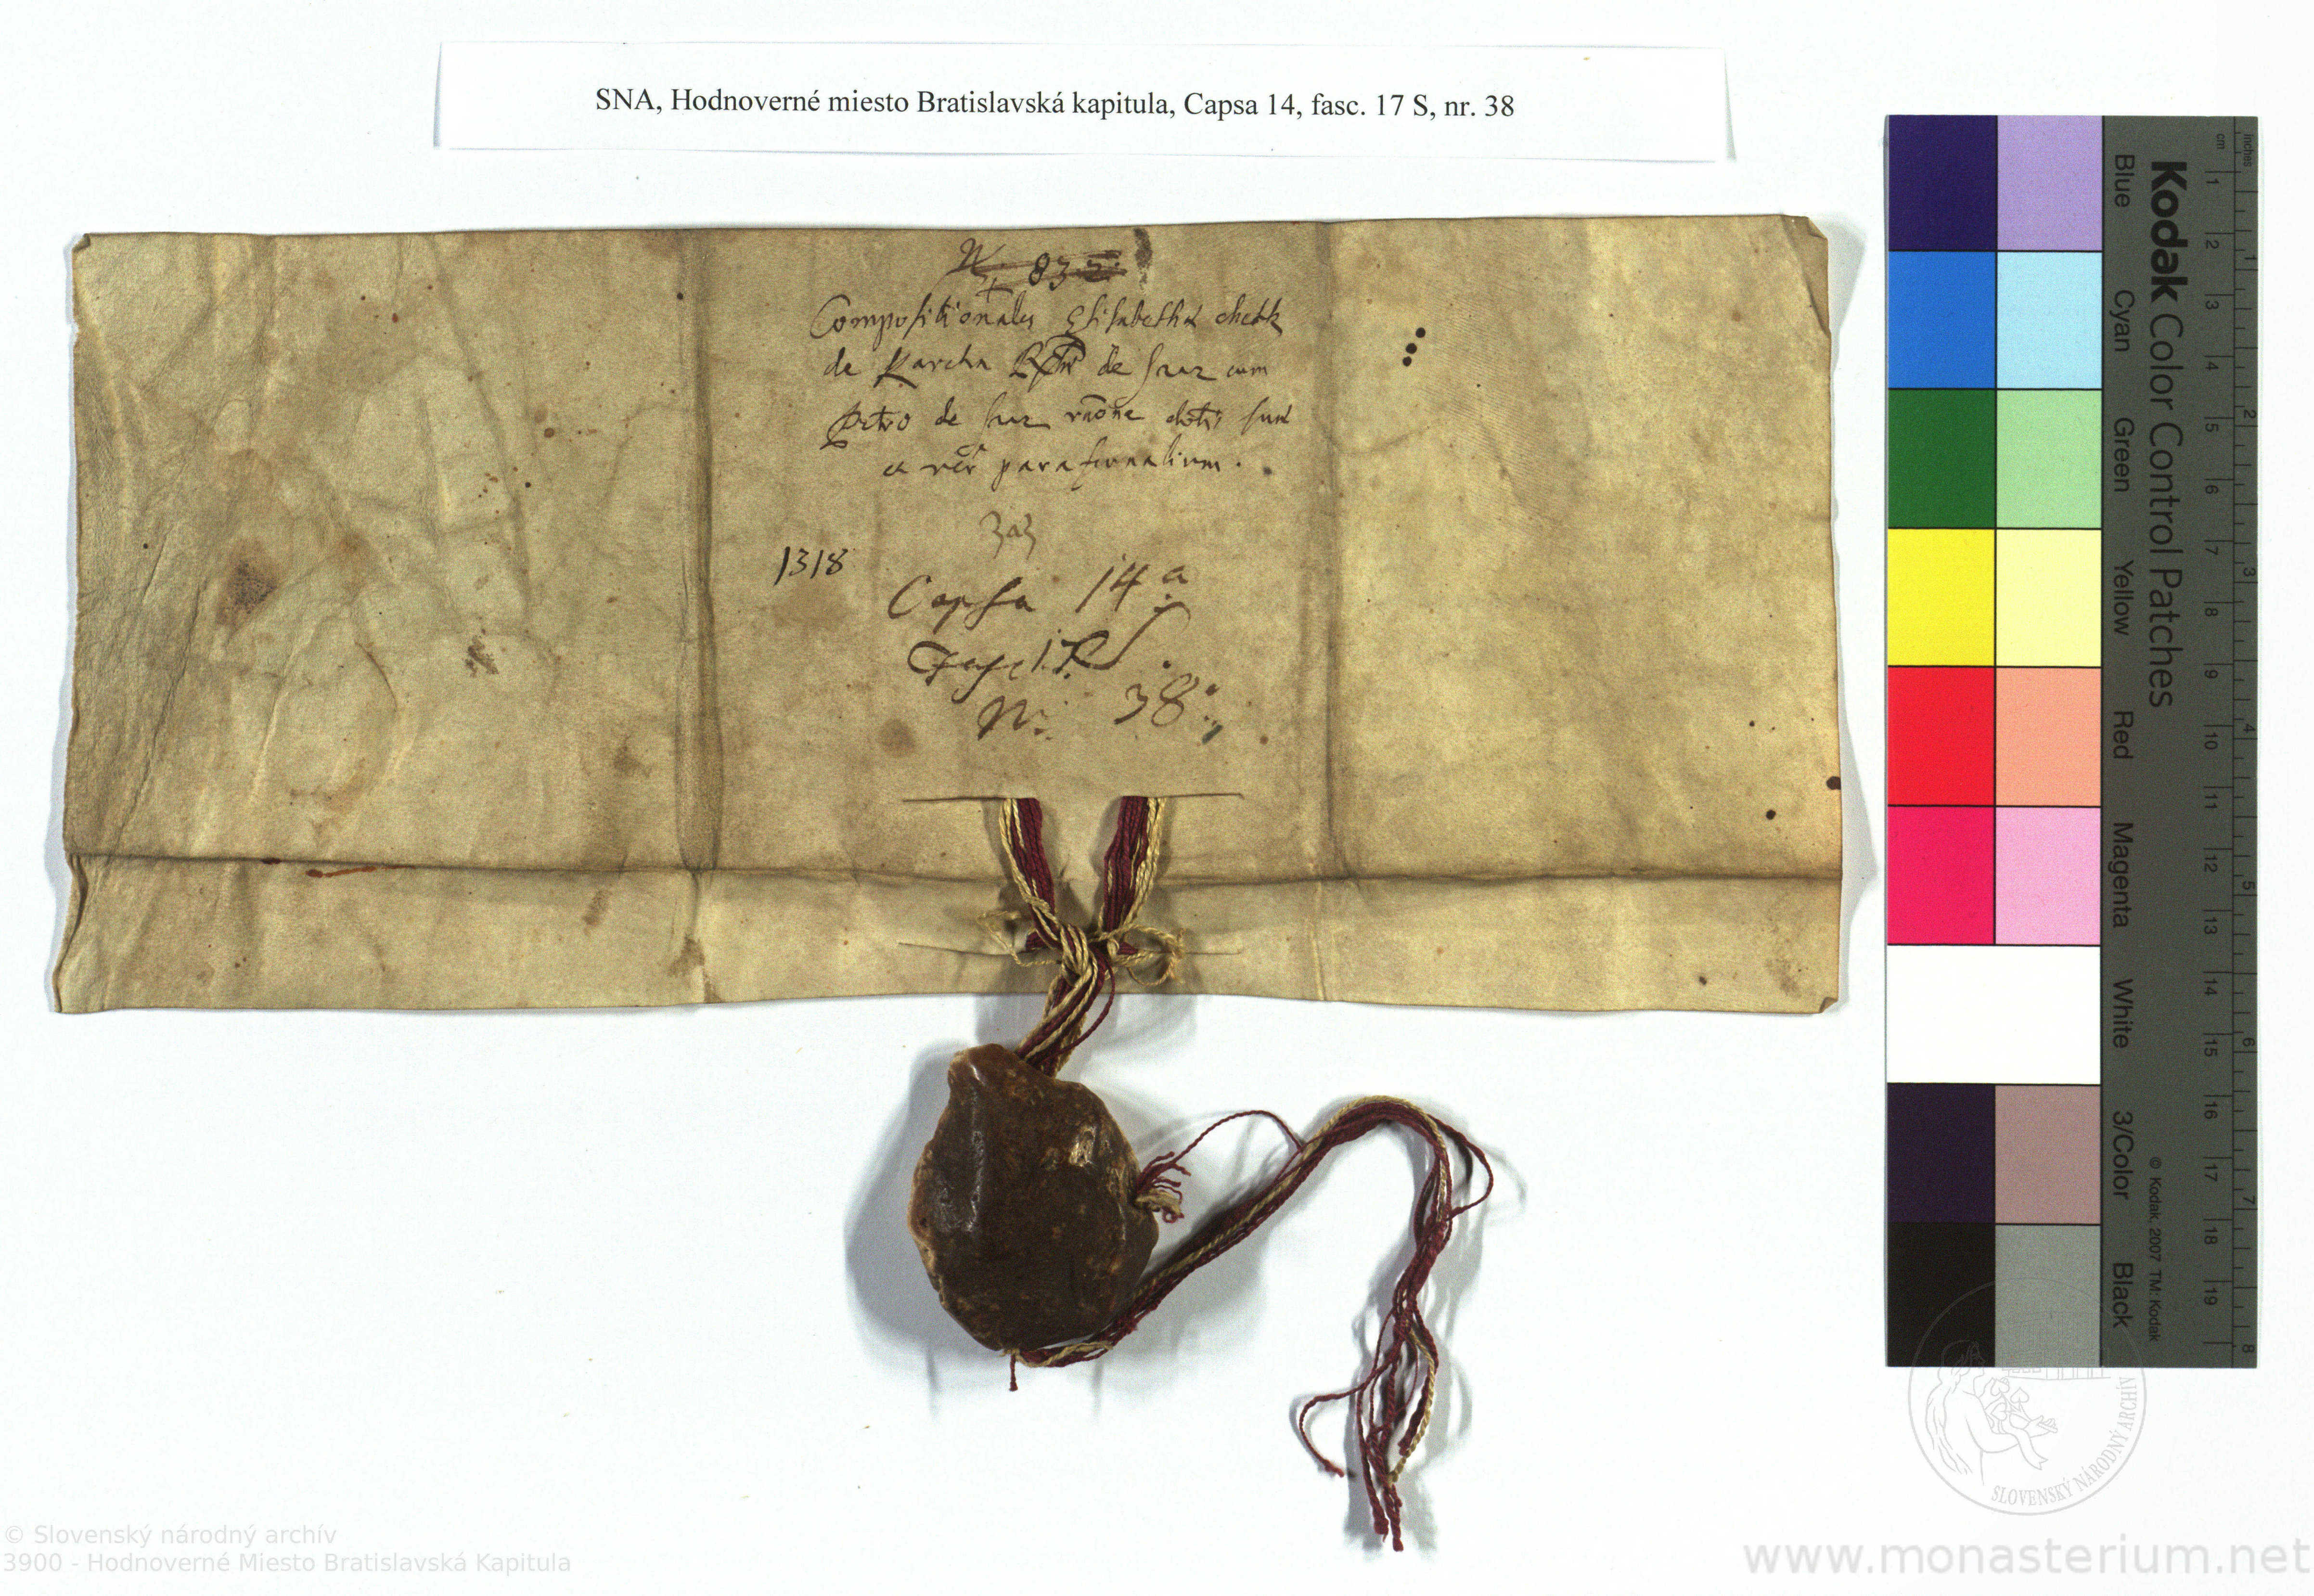 SNA, Hodnoverné miesto Bratislavská kapitula, Capsa 14, fasc. 17 S, nr. 38
N. 835
Compositionales Elisabethæ
de Karcha de Szuz cum
Petro de Szuz rãone dotis suæ
et parafernalium.
1318
Capsa 14.a
Fasc 17. S.
N. 38.
Kodak Color Control Patches
Blue Cyan Green Yellow Red Magenta White 3/Color Black
© Kodak, 2007 TM: Kodak
cm 1 2 3 4 5 6 7 8 9 10 11 12 13 14 15 16 17 18 19
inches 1 2 3 4 5 6 7 8
SLOVENSKÝ NÁRODNÝ ARCHÍV
© Slovenský národný archív
3900 - Hodnoverné Miesto Bratislavská Kapitula
www.monasterium.net